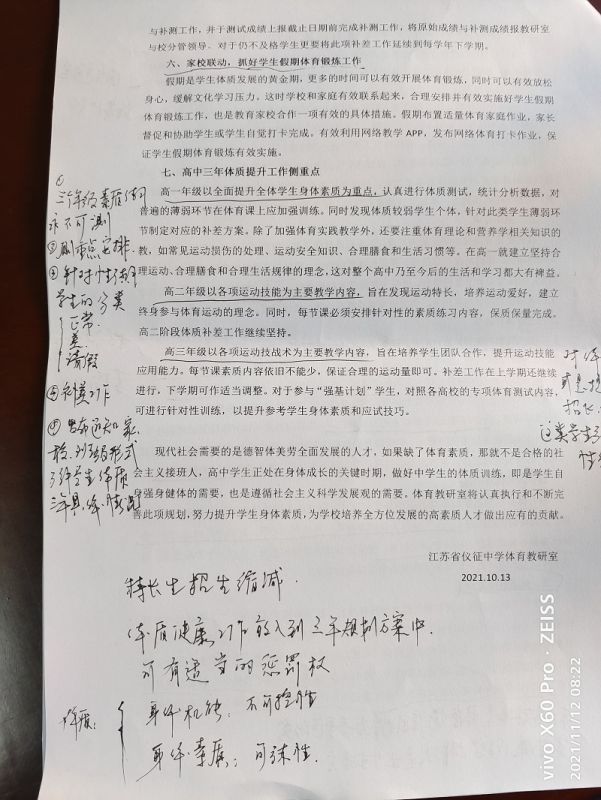 与补测工作，并于测试成绩上报截止日期前完成补测工作，将原始成绩与补测成绩报教研室
与校分管领导。对于仍不及格学生更要将此项补差工作延续到每学年下学期。
六、家校联动，抓好学生假期体育锻炼工作
假期是学生体质发展的黄金期，更多的时间可以有效开展体育锻炼，同时可以有效放松
身心，缓解文化学习压力。这时学校和家庭有效联系起来，合理安排并有效实施好学生假期
体育锻炼工作，也是教育家校合作一项有效的具体措施。假期布置适量体育家庭作业，家长
督促和协助学生或学生自觉打卡完成。有效利用网络教学 APP，发布网络体育打卡作业，保
证学生假期体育锻炼有效实施。
七、高中三年体质提升工作侧重点
高一年级以全面提升全体学生身体素质为重点，认真进行体质测试，统计分析数据，对
普遍的薄弱环节在体育课上应加强训练。同时发现体质较弱学生个体，针对此类学生薄弱环
节制定对应的补差方案。除了加强体育实践教学外，还要注重体育理论和营养学相关知识的
教，如常见运动损伤的处理、运动安全知识、合理膳食和生活习惯等。在高一就建立坚持合
理运动、合理膳食和合理生活规律的理念，这对整个高中乃至今后的生活和学习都大有裨益。
高二年级以各项运动技能为主要教学内容，旨在发现运动特长，培养运动爱好，建立
终身参与体育运动的理念。同时，每节课必须安排针对性的素质练习内容，保质保量完成。
高二阶段体质补差工作继续坚持。
高三年级以各项运动技战术为主要教学内容，旨在培养学生团队合作，提升运动技能
应用能力。每节课素质内容依旧不能少，保证合理的运动量即可。补差工作在上学期还继续
进行，下学期可作适当调整。对于参与“强基计划”学生，对照各高校的专项体育测试内容，
可进行针对性训练，以提升参考学生身体素质和应试技巧。
现代社会需要的是德智体美劳全面发展的人才，如果缺了体育素质，那就不是合格的社
会主义接班人，高中学生正处在身体成长的关键时期，做好中学生的体质训练，即是学生自
身强身健体的需要，也是遵循社会主义科学发展观的需要，体育教研室将认真执行和不断完
善此项规划，努力提升学生身体素质，为学校培养全方位发展的高素质人才做出应有的贡献。
江苏省仪征中学体育教研室
2021.10.13
三个年级素质
不可测
针对个别
学生的分类
正常
差
请假
工作
发布通知家
校、班级形式
学生体质
特长生招生缩减.
体质健康工作放入到三年规划方案中.
可有适当的惩罚权
体质：
身体机能：不可控性
身体素质：可练性.
这类学生
vivo X60 Pro · ZEISS
2021/11/12 08:22